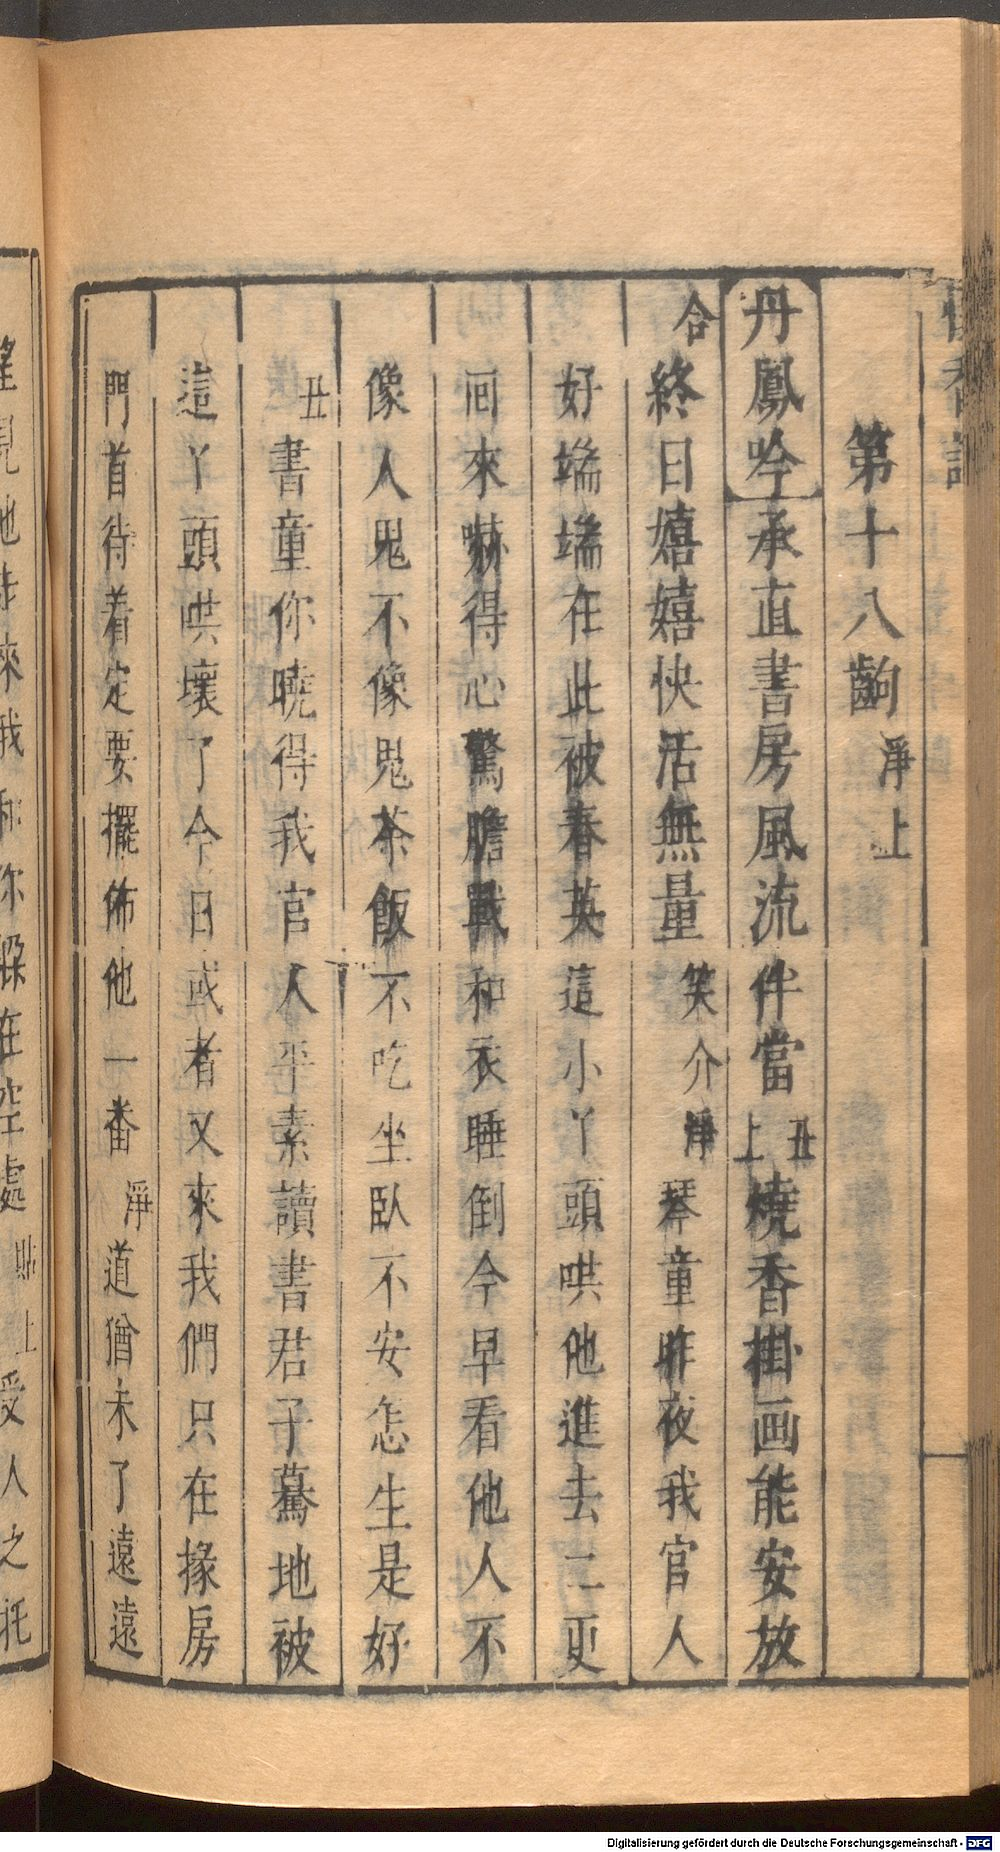 第十八齣 淨上
丹鳳吟 承直書房風流伴當 丑上 燒香掛画能安放
合 終日嬉嬉快活無量 笑介 淨 琴童昨夜我官人
好端端在此被春英這小丫頭哄他進去二更
囘來嚇得心驚膽戰和衣睡倒今早看他人不
像人鬼不像鬼茶飯不吃坐臥不安怎生是好
丑 書童你曉得我官人平素讀書君子驀地被
這丫頭哄壞了今日或者又來我們只在掾房
門首待着定要擺佈他一番 淨 道猶未了遠遠
望見他走來我和你躱在空處 貼上 受人之托
Digitalisierung gefördert durch die Deutsche Forschungsgemeinschaft - DFG